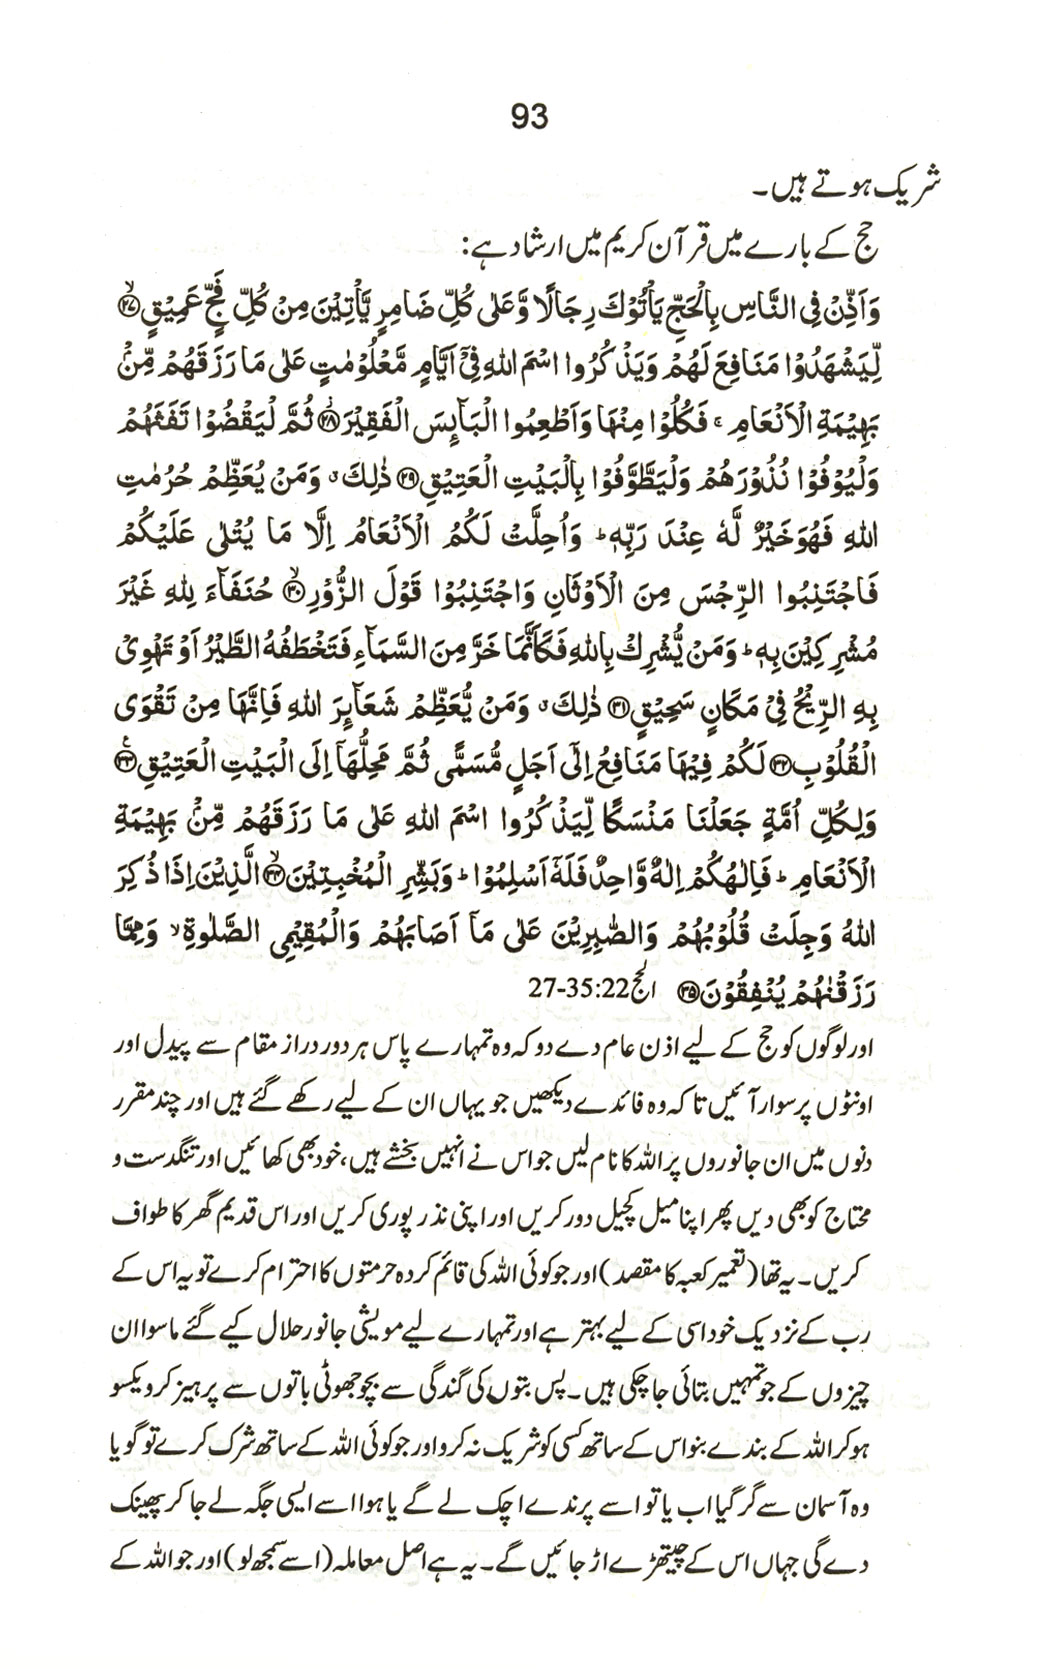 93
شریک ہوتے ہیں۔
حج کے بارے میں قرآن کریم میں ارشاد ہے:
وَاَذِّنْ فِی النَّاسِ بِالْحَجِّ یَاْتُوْكَ رِجَالًا وَّعَلٰی كُلِّ ضَامِرٍ یَّاْتِیْنَ مِنْ كُلِّ فَجٍّ عَمِیْقٍ ۙ﴿۲۷﴾
لِّیَشْهَدُوْا مَنَافِعَ لَهُمْ وَیَذْكُرُوا اسْمَ اللهِ فِیْۤ اَیَّامٍ مَّعْلُوْمٰتٍ عَلٰی مَا رَزَقَهُمْ مِّنْۢ
بَهِیْمَةِ الْاَنْعَامِ ۚ فَكُلُوْا مِنْهَا وَاَطْعِمُوا الْبَآىِٕسَ الْفَقِیْرَ ۫﴿۲۸﴾ ثُمَّ لْیَقْضُوْا تَفَثَهُمْ
وَلْیُوْفُوْا نُذُوْرَهُمْ وَلْیَطَّوَّفُوْا بِالْبَیْتِ الْعَتِیْقِ ﴿۲۹﴾ ذٰلِكَ ۗ وَمَنْ یُّعَظِّمْ حُرُمٰتِ
اللهِ فَهُوَ خَیْرٌ لَّهٗ عِنْدَ رَبِّهٖ ؕ وَاُحِلَّتْ لَكُمُ الْاَنْعَامُ اِلَّا مَا یُتْلٰی عَلَیْكُمْ
فَاجْتَنِبُوا الرِّجْسَ مِنَ الْاَوْثَانِ وَاجْتَنِبُوْا قَوْلَ الزُّوْرِ ۙ﴿۳۰﴾ حُنَفَآءَ لِلّٰهِ غَیْرَ
مُشْرِكِیْنَ بِهٖ ؕ وَمَنْ یُّشْرِكْ بِاللهِ فَكَاَنَّمَا خَرَّ مِنَ السَّمَآءِ فَتَخْطَفُهُ الطَّیْرُ اَوْ تَهْوِیْ
بِهِ الرِّیْحُ فِیْ مَكَانٍ سَحِیْقٍ ﴿۳۱﴾ ذٰلِكَ ۗ وَمَنْ یُّعَظِّمْ شَعَآىِٕرَ اللهِ فَاِنَّهَا مِنْ تَقْوَی
الْقُلُوْبِ ﴿۳۲﴾ لَكُمْ فِیْهَا مَنَافِعُ اِلٰۤی اَجَلٍ مُّسَمًّی ثُمَّ مَحِلُّهَاۤ اِلَی الْبَیْتِ الْعَتِیْقِ ﴿۳۳﴾
وَلِكُلِّ اُمَّةٍ جَعَلْنَا مَنْسَكًا لِّیَذْكُرُوا اسْمَ اللهِ عَلٰی مَا رَزَقَهُمْ مِّنْۢ بَهِیْمَةِ
الْاَنْعَامِ ؕ فَاِلٰهُكُمْ اِلٰهٌ وَّاحِدٌ فَلَهٗۤ اَسْلِمُوْا ؕ وَبَشِّرِ الْمُخْبِتِیْنَ ۙ﴿۳۴﴾ الَّذِیْنَ اِذَا ذُكِرَ
اللهُ وَجِلَتْ قُلُوْبُهُمْ وَالصّٰبِرِیْنَ عَلٰی مَاۤ اَصَابَهُمْ وَالْمُقِیْمِی الصَّلٰوةِ ۙ وَمِمَّا
رَزَقْنٰهُمْ یُنْفِقُوْنَ ﴿۳۵﴾ الحج 22:35-27
اور لوگوں کو حج کے لیے اذن عام دے دو کہ وہ تمہارے پاس ہر دور دراز مقام سے پیدل اور
اونٹوں پر سوار آئیں تاکہ وہ فائدے دیکھیں جو یہاں ان کے لیے رکھے گئے ہیں اور چند مقرر
دنوں میں ان جانوروں پر اللہ کا نام لیں جو اس نے انہیں بخشے ہیں، خود بھی کھائیں اور تنگدست و
محتاج کو بھی دیں پھر اپنا میل کچیل دور کریں اور اپنی نذر پوری کریں اور اس قدیم گھر کا طواف
کریں۔ یہ تھا (تعمیر کعبہ کا مقصد) اور جو کوئی اللہ کی قائم کردہ حرمتوں کا احترام کرے تو یہ اس کے
رب کے نزدیک خود اسی کے لیے بہتر ہے اور تمہارے لیے مویشی جانور حلال کیے گئے ماسوا ان
چیزوں کے جو تمہیں بتائی جا چکی ہیں۔ پس بتوں کی گندگی سے بچو جھوٹی باتوں سے پرہیز کرو یکسو
ہو کر اللہ کے بندے بنو اس کے ساتھ کسی کو شریک نہ کرو اور جو کوئی اللہ کے ساتھ شرک کرے تو گویا
وہ آسمان سے گر گیا اب یا تو اسے پرندے اچک لے گے یا ہوا اسے ایسی جگہ لے جا کر پھینک
دے گی جہاں اس کے چیتھڑے اڑ جائیں گے۔ یہ ہے اصل معاملہ (اسے سمجھ لو) اور جو اللہ کے